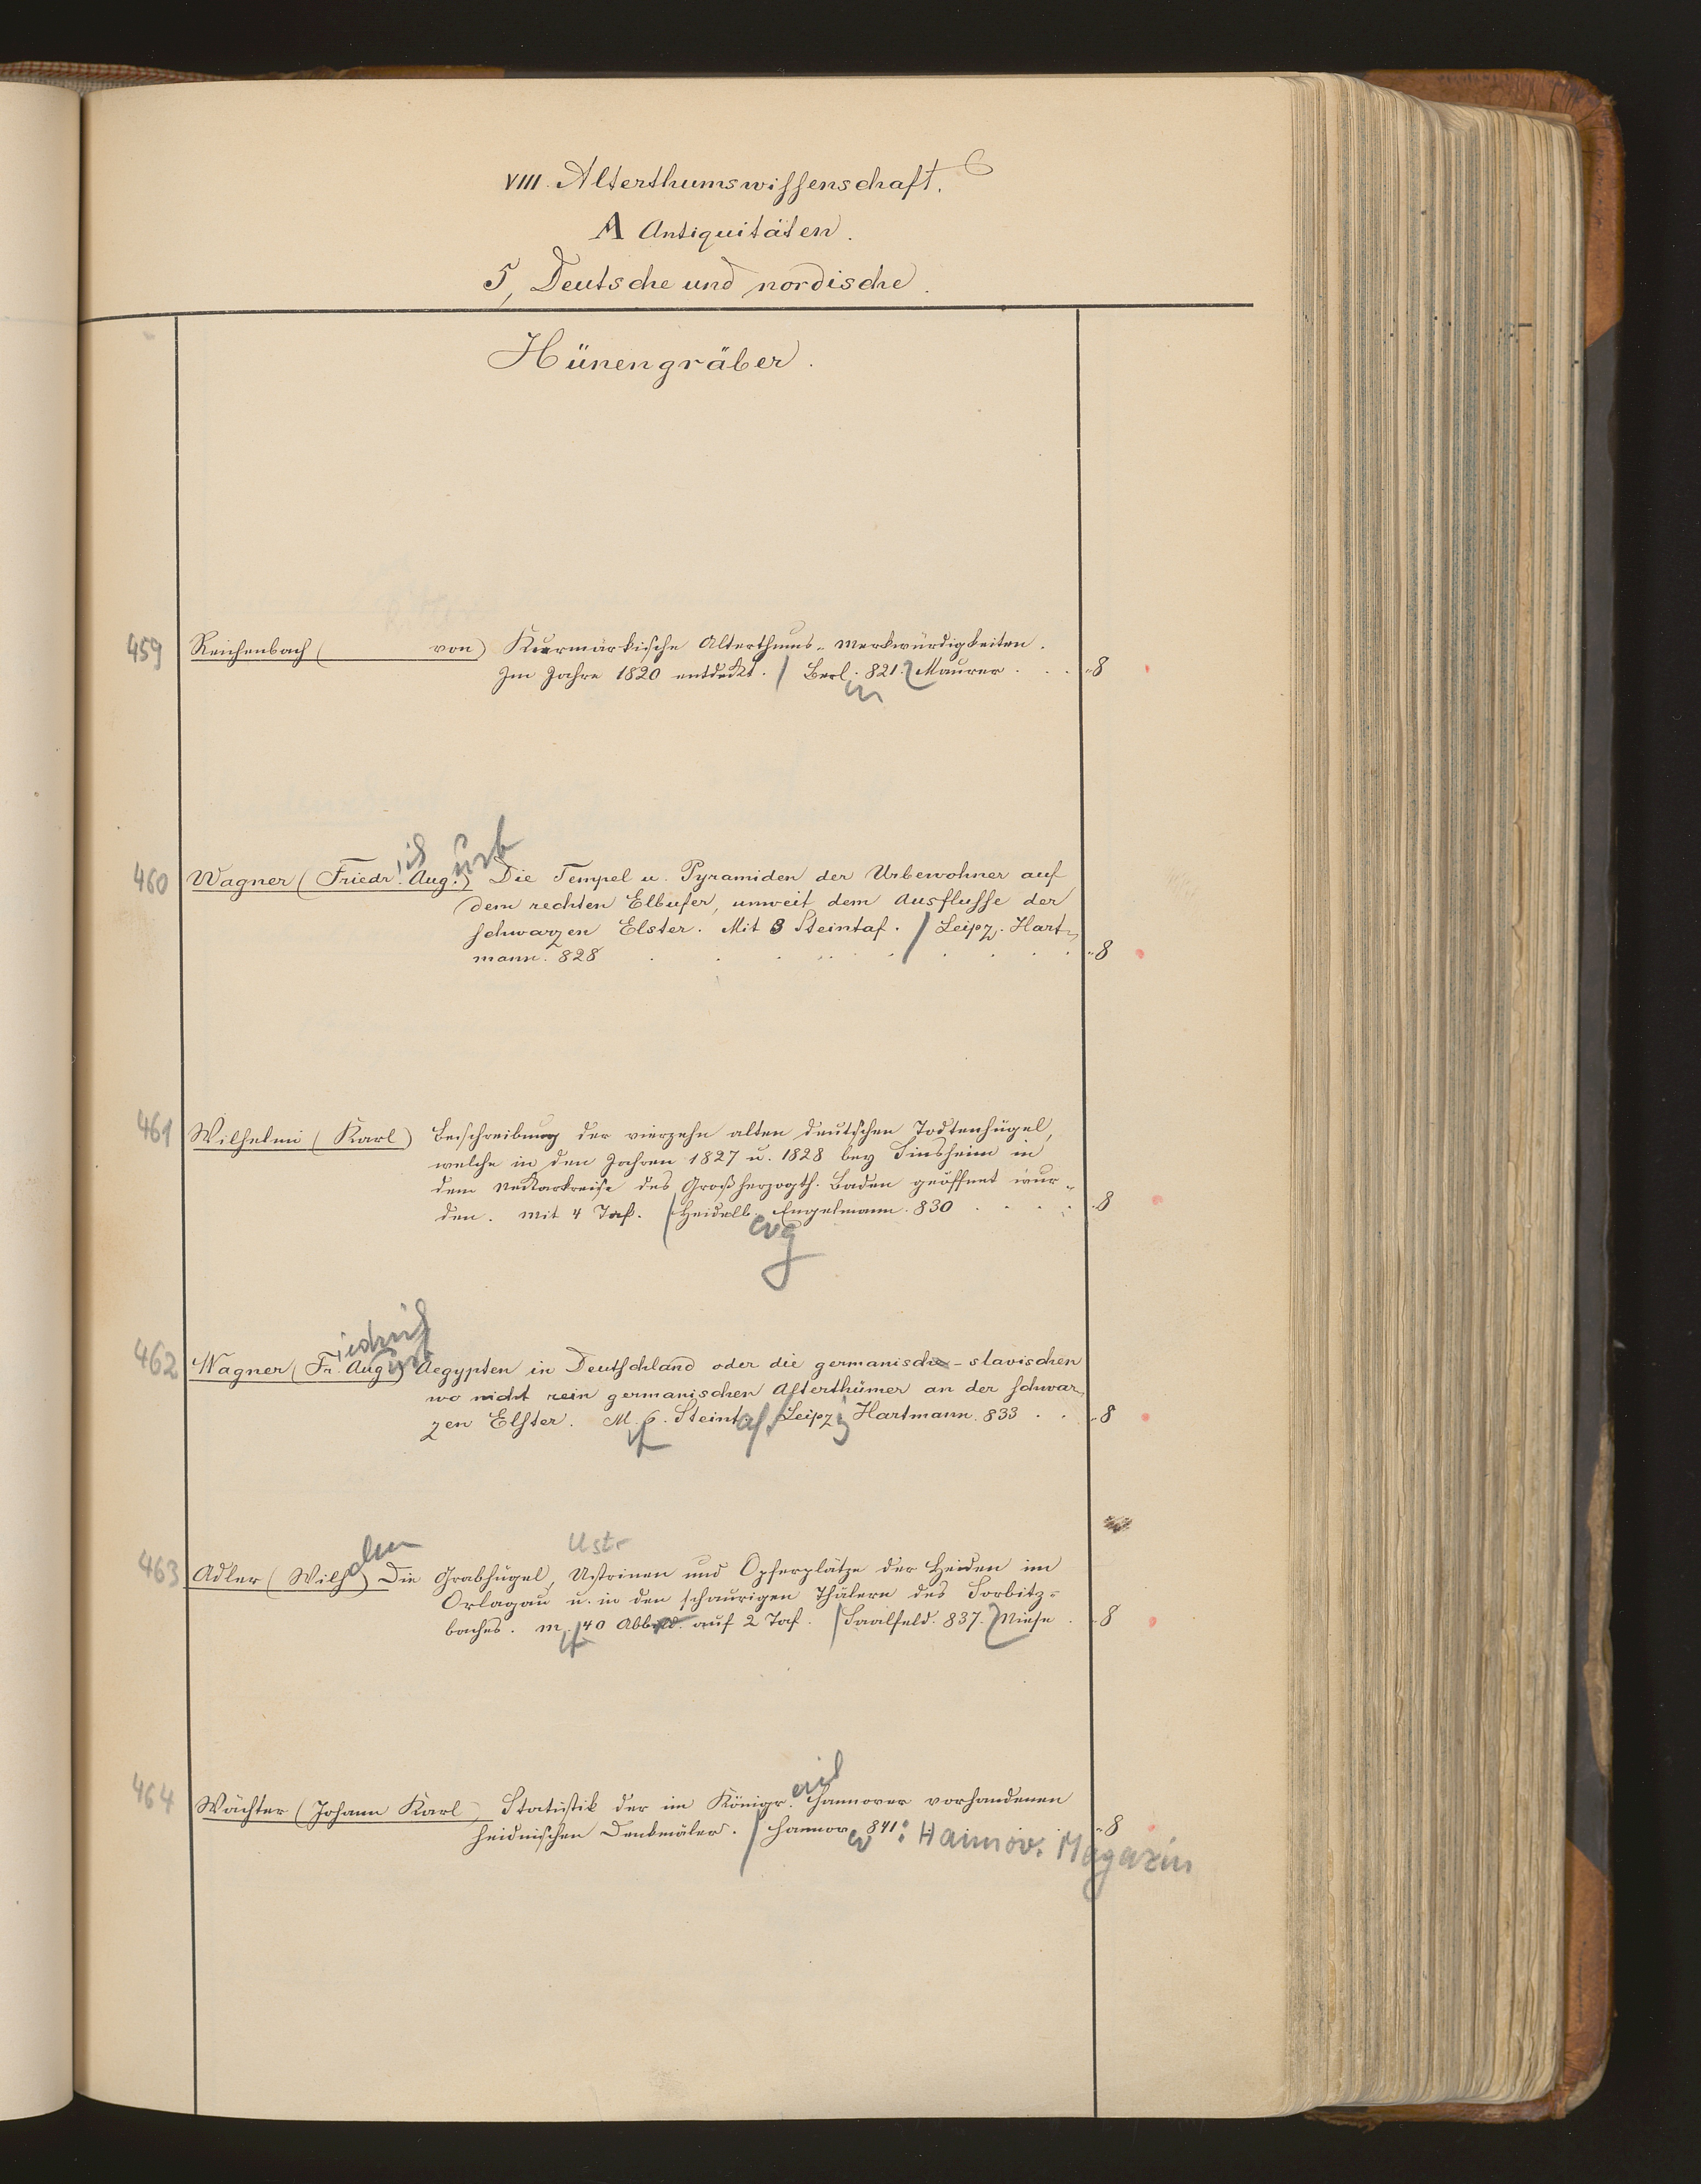 VIII. Alterthumswissenschaft.
A Antiquitäten.
5, Deutsche und nordische.
Hünengräber.
459 Reichenbach ( von) Kurmärkische Alterthums-Merkwürdigkeiten.
Im Jahre 1820 entdeckt. / Berl. in 821. Maurer . . . 8
460 Wagner (Friedr. ich Aug. ust) Die Tempel u. Pyramiden der Urbewohner auf
dem rechten Elbufer, unweit dem Ausflusse der
schwarzen Elster. Mit 8 Steintaf. / Leipz. Hart-
mann. 828 . . . . . . . . 8
461 Wilhelmi (Karl) Beschreibung der vierzehn alten deutschen Todtenhügel,
welche in den Jahren 1827 u. 1828 bey Sinsheim in
dem Neckarkreise des Großherzogth. Baden geöffnet wur-
den. Mit 4 Taf. / Heidelb. erg Engelmann. 830 . . . . 8
462 Wagner (Fr. iedrich Aug. ust) Aegypten in Deutschland oder die germanisch-slavischen
wo nicht rein germanischen Alterthümer an der schwar-
zen Elster. M. 6. Steint. af. / Leipz. ig Hartmann. 833 . . 8
Ustr
463 Adler (Wilh. elm) Die Grabhügel, Ustrinen und Opferplätze der Heiden im
Orlagau u. in den schaurigen Thälern des Sorbitz-
baches. M. 40 Abb. auf 2 Taf. / Saalfeld. 837. Niese . 8
464 Wächter (Johann Karl) Statistik der im Königr. eich Hannover vorhandenen
heidnischen Denkmäler. / Hannov. er 841: Hannov. Magazin 8